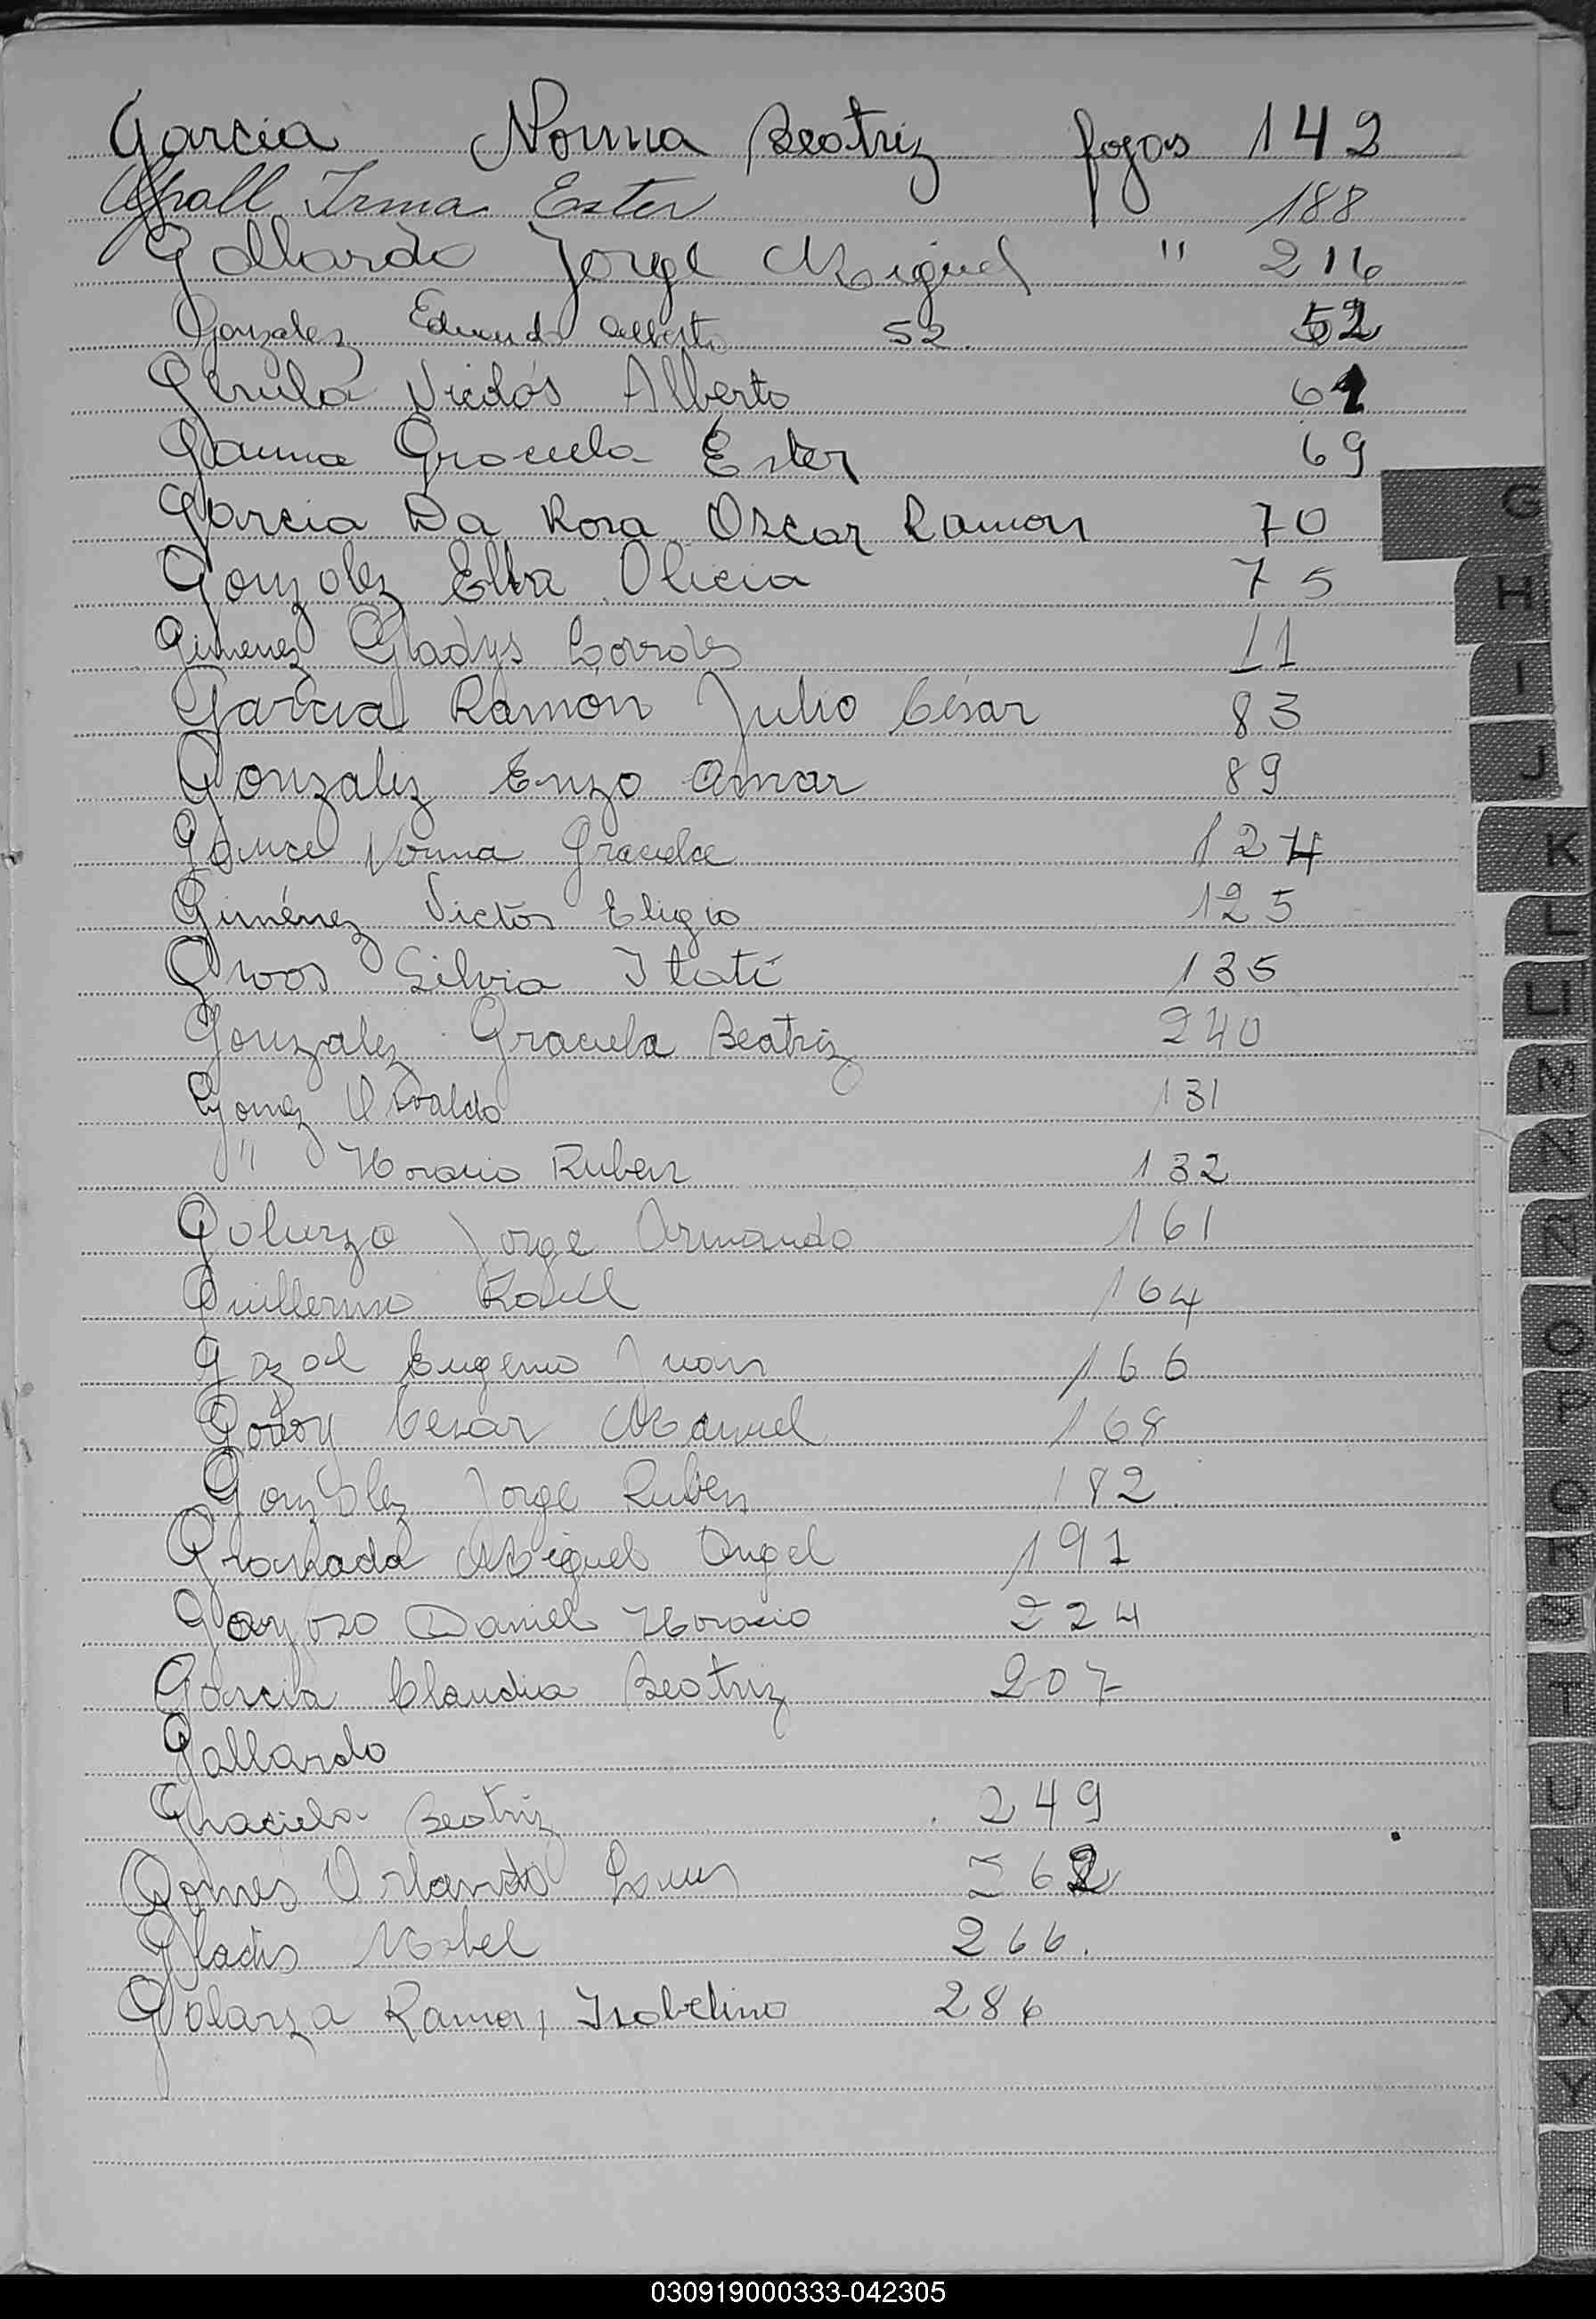 Garcia Norma Beatriz fojas 142
Gfpoll Irma Ester 188
Gallardo Jorge Miguel " 216
Gonzalez Eduardo Alberto 52. 52
Victor Alberto 61
Gauna Graciela Ester 69
Garcia Da Rosa Oscar Ramon 70
Gonzalez Elba Alicia 75
Gimenez Gladys Lourdes 11
Garcia Ramón Julio César 83
Gonzalez Enzo Omar 89
Norma Graciela 124
Giménez Victor Eligio 125
Silvia Itatí 135
Gonzalez Graciela Beatriz 240
Gomez Osvaldo 131
" Horacio Ruben 132
Jorge Armando 161
Guillermo Raúl 164
Eugenio Juan 166
Godoy Cesar Manuel 168
González Jorge Ruben 182
Granada Miguel Angel 191
Gayoso Daniel Horacio 224
Garcia Claudia Beatriz 207
Gallardo
Graciela Beatriz 249
Gomes Orlando Luis 262
Gladis Mabel 266.
Golarza Ramon, Isabelino 286
G
H
I
J
K
L
Ll
M
N
Ñ
O
P
Q
R
S
T
U
V
W
X
Y
Z
030919000333-042305